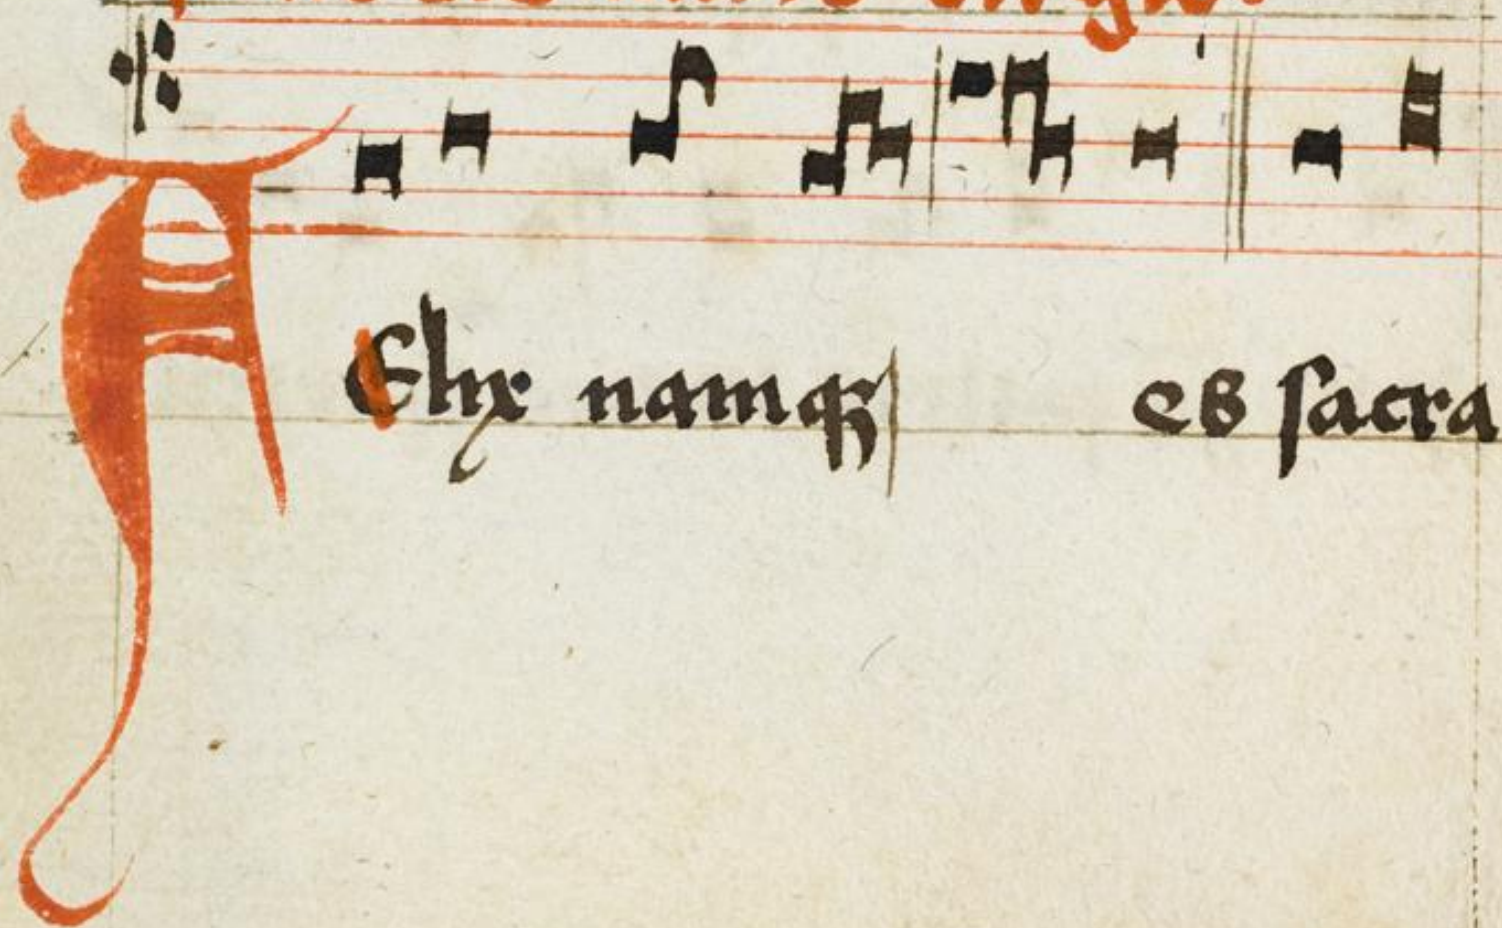 FElix namqꝫ es sacra